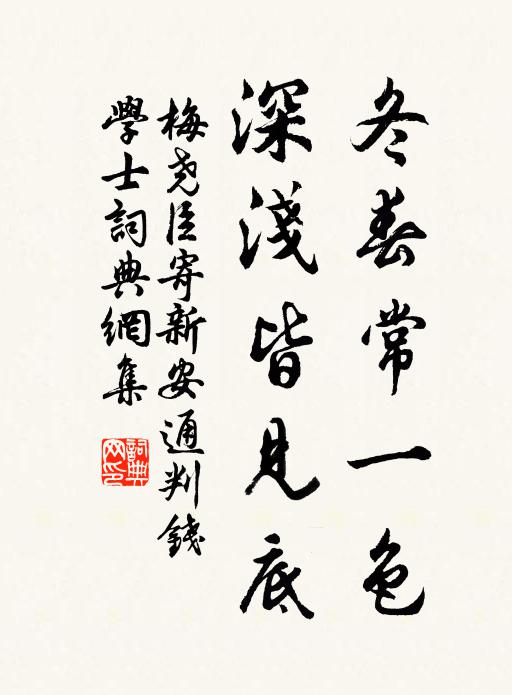 冬春常一色
深淺皆見底
梅堯臣寄新安通判錢
學士詞典網集
詞典
网印